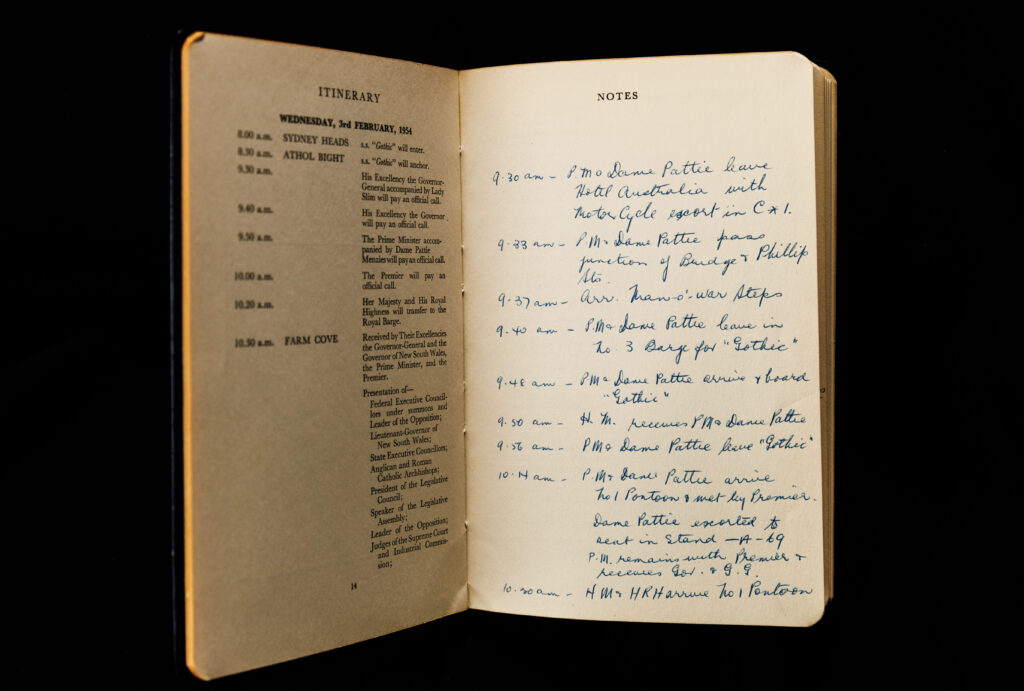 ITINERARY
WEDNESDAY, 3rd FEBRUARY, 1954
8.00 a.m. SYDNEY HEADS s.s. "Gothic" will enter.
8.30 a.m. ATHOL BIGHT s.s. "Gothic" will anchor.
9.30 a.m. His Excellency the Governor-
General accompanied by Lady
Slim will pay an official call.
9.40 a.m. His Excellency the Governor
will pay an official call.
9.50 a.m. The Prime Minister accom-
panied by Dame Pattie
Menzies will pay an official call.
10.00 a.m. The Premier will pay an
official call.
10.20 a.m. Her Majesty and His Royal
Highness will transfer to the
Royal Barge.
10.30 a.m. FARM COVE Received by Their Excellencies
the Governor-General and the
Governor of New South Wales,
the Prime Minister, and the
Premier.
Presentation of—
Federal Executive Council-
lors under summons and
Leader of the Opposition;
Lieutenant-Governor of
New South Wales;
State Executive Councillors;
Anglican and Roman
Catholic Archbishops;
President of the Legislative
Council;
Speaker of the Legislative
Assembly;
Leader of the Opposition;
Judges of the Supreme Court
and Industrial Commis-
sion;
14
NOTES
9.30 am - P.M & Dame Pattie leave
Hotel Australia with
Motor Cycle escort in C*1.
9.33 am - P.M & Dame Pattie pass
junction of Bridge & Phillip
Sts.
9.37 am - Arr. Man-o'-war Steps
9.40 am - P.M & Dame Pattie leave in
No. 3 Barge for "Gothic"
9.48 am - P.M & Dame Pattie arrive & board
"Gothic"
9.50 am - H.M. receives P.M & Dame Pattie
9.56 am - P.M & Dame Pattie leave "Gothic"
10.4 am - P.M & Dame Pattie arrive
No 1 Pontoon & met by Premier.
Dame Pattie escorted to
seat in Stand - A-69
P.M. remains with Premier &
receives Gov. & G.G.
10.30 am - H M & HRH arrive No 1 Pontoon